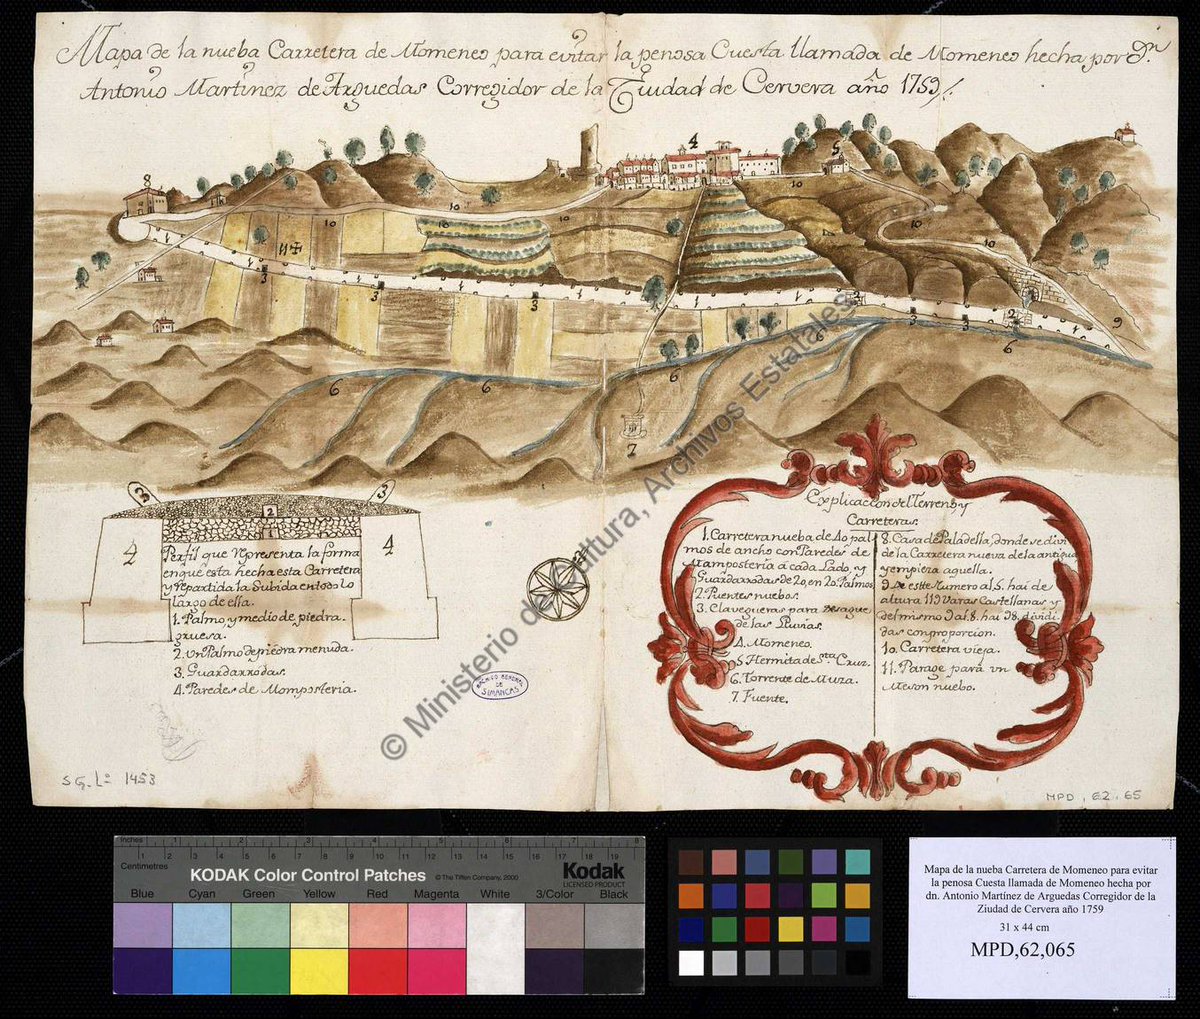 Mapa de la nueba Carretera de Momeneo para evitar la penosa Cuesta llamada de Momeneo hecha por Dn.
Antonio Martinez de Arguedas Corregidor de la Ziudad de Cervera año 1759
4
5
8
10
10
10
10
10
10
11
3
3
3
2
3
3
2
9
1
6
6
6
6
6
7
3
3
2
1
4
4
Perfil que representa la forma
en que esta hecha esta Carretera
y repartida la Subida en todo lo
largo de ella.
1. Palmo y medio de piedra
gruesa.
2. Un Palmo de piedra menuda.
3. Guardarrodas.
4. Paredes de Momposteria.
ARCHIVO GENERAL
DE
SIMANCAS
Explicacion del Terreno y
Carreteras.
1. Carretera nueba de 40 pal
mos de ancho con Paredes de
Mamposteria á cada Lado, y
Guardarrodas de 20, en 20 Palmos
2. Puentes nuebos.
3. Clavegueras para desague
de las Lluvias.
4. Momeneo.
5. Hermita de Sta Cruz.
6. Torrente de Muza.
7. Fuente.
8. Casa de Paladella, donde se divi
de la Carretera nueva de la antigua
y empieza aquella.
9. De este Numero al 5. hai de
altura 119 Varas Castellanas y
del mismo 9 al 8. hai 98. dividi
das con proporcion.
10. Carretera vieja.
11. Parage para un
Meson nuebo.
© Ministerio de Cultura, Archivos Estatales
S G. Lo 1453
MPD, 62, 65
Inches 1 2 3 4 5 6 7 8
1 2 3 4 5 6 7 8 9 10 11 12 13 14 15 16 17 18 19
Centimetres
KODAK Color Control Patches © The Tiffen Company, 2000 Kodak
LICENSED PRODUCT
Blue Cyan Green Yellow Red Magenta White 3/Color Black
Mapa de la nueba Carretera de Momeneo para evitar
la penosa Cuesta llamada de Momeneo hecha por
dn. Antonio Martínez de Arguedas Corregidor de la
Ziudad de Cervera año 1759
31 x 44 cm
MPD,62,065